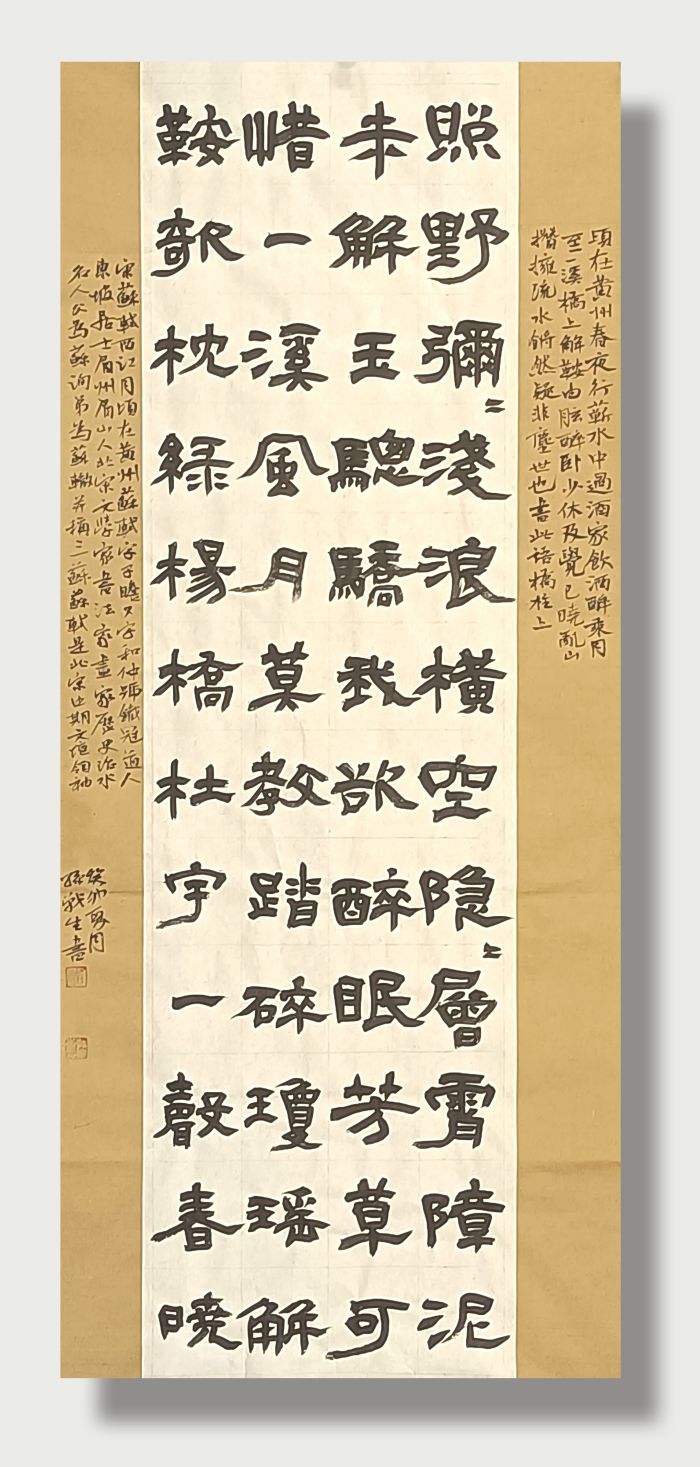 頃在黄州春夜行蘄水中過酒家飲酒醉乘月
至一溪橋上解鞍曲肱醉卧少休及覺已曉亂山
攢擁流水鏘然疑非塵世也書此語橋柱上
照野彌〻淺浪橫空隐〻層霄障泥
未解玉驄驕我欲醉眠芳草可
惜一溪風月莫教踏碎瓊瑶解
鞍欹枕緑楊橋杜宇一聲春曉
宋蘇軾西江月頃在黄州蘇軾字子瞻又字和仲號鐵冠道人
東坡居士眉州眉山人北宋文學家書法家畫家歷史治水
名人父爲蘇洵弟為蘇轍并稱三蘇蘇軾是北宋中期文壇領袖
癸卯月
孫戰生書